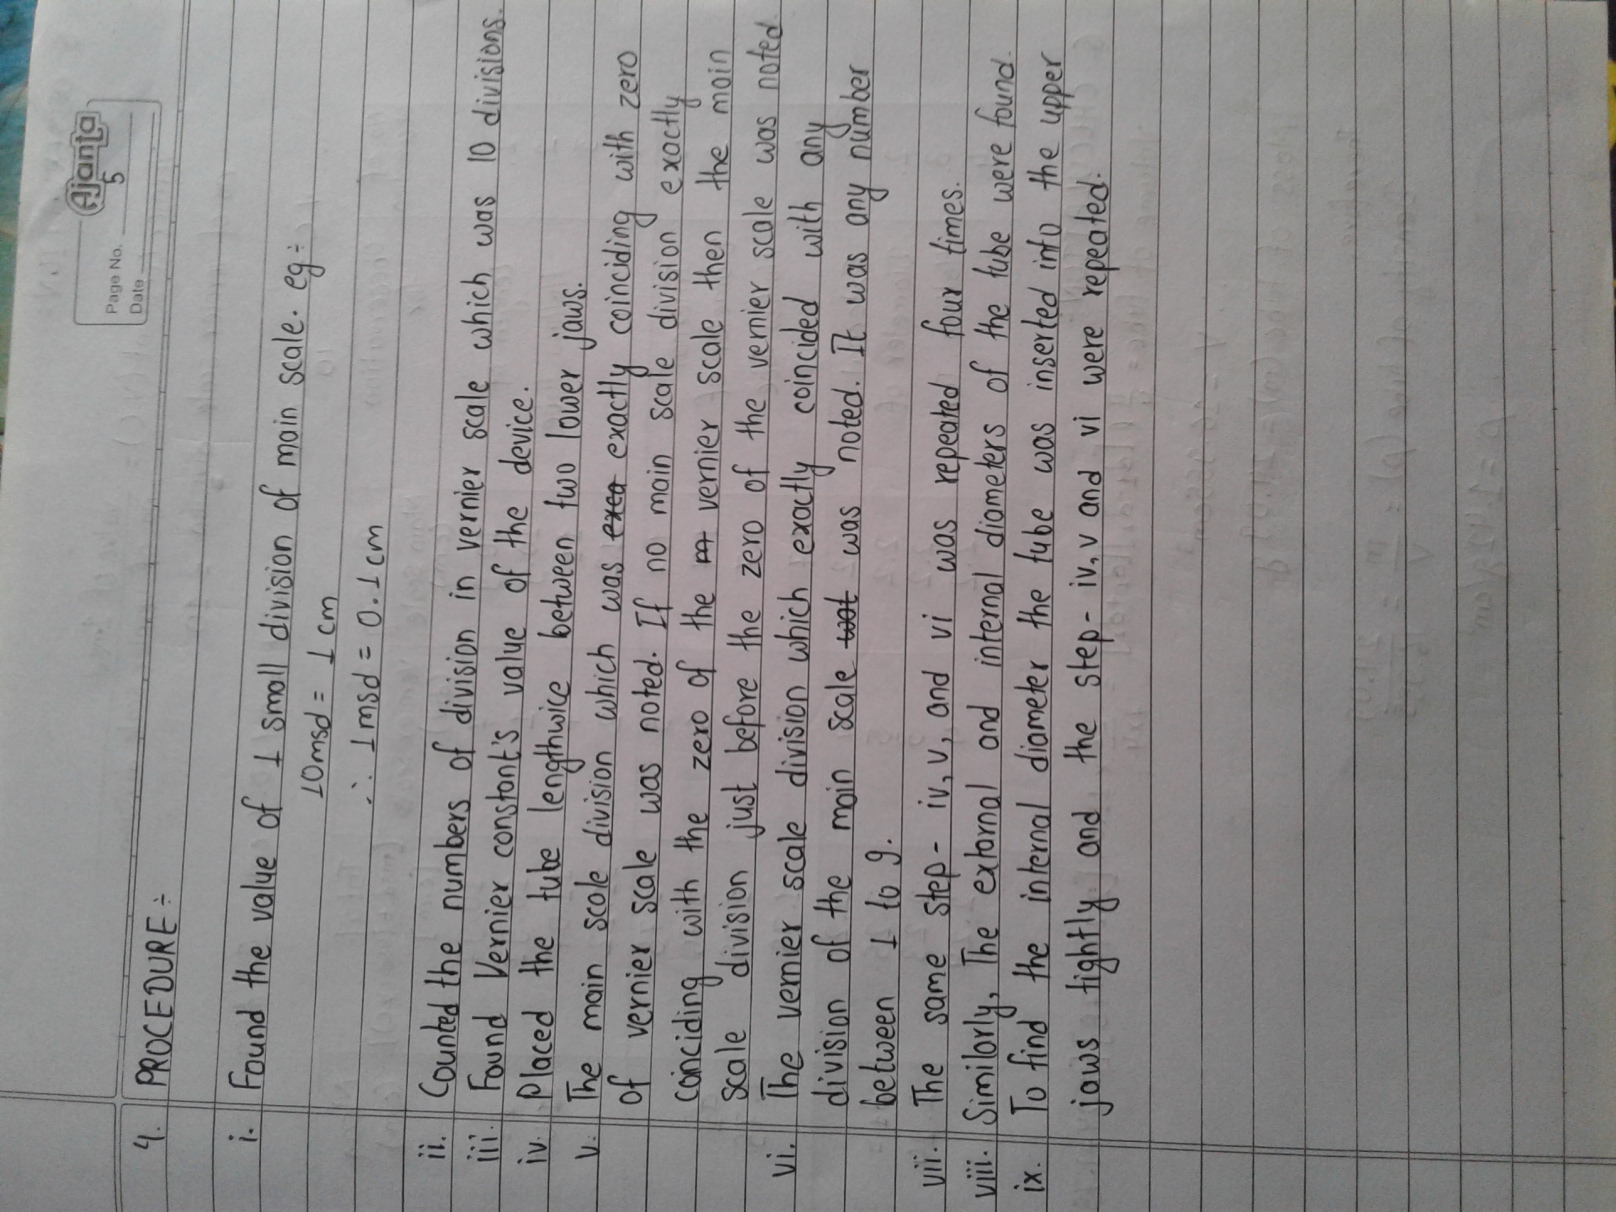 Ajanta
Page No. 5
Date
4. PROCEDURE ÷
i. Found the value of 1 small division of main scale. eg ÷
10msd = 1 cm
∴ 1msd = 0.1cm
ii. Counted the numbers of division in vernier scale which was 10 divisions.
iii. Found Vernier constant's value of the device.
iv. Placed the tube lengthwice between two lower jaws.
v. The main scale division which was exea exactly coinciding with zero
of vernier scale was noted. If no main scale division exactly
conciding with the zero of the m vernier scale then the main
scale division just before the zero of the vernier scale was noted
vi. The vernier scale division which exactly coincided with any
division of the main scale wat was noted. It was any number
between 1 to 9.
vii. The same step- iv, v, and vi was repeated four times.
viii. Similarly, The extornal and internal diameters of the tube were found.
ix. To find the internal diameter the tube was inserted into the upper
jaws tightly and the step- iv, v and vi were repeated.